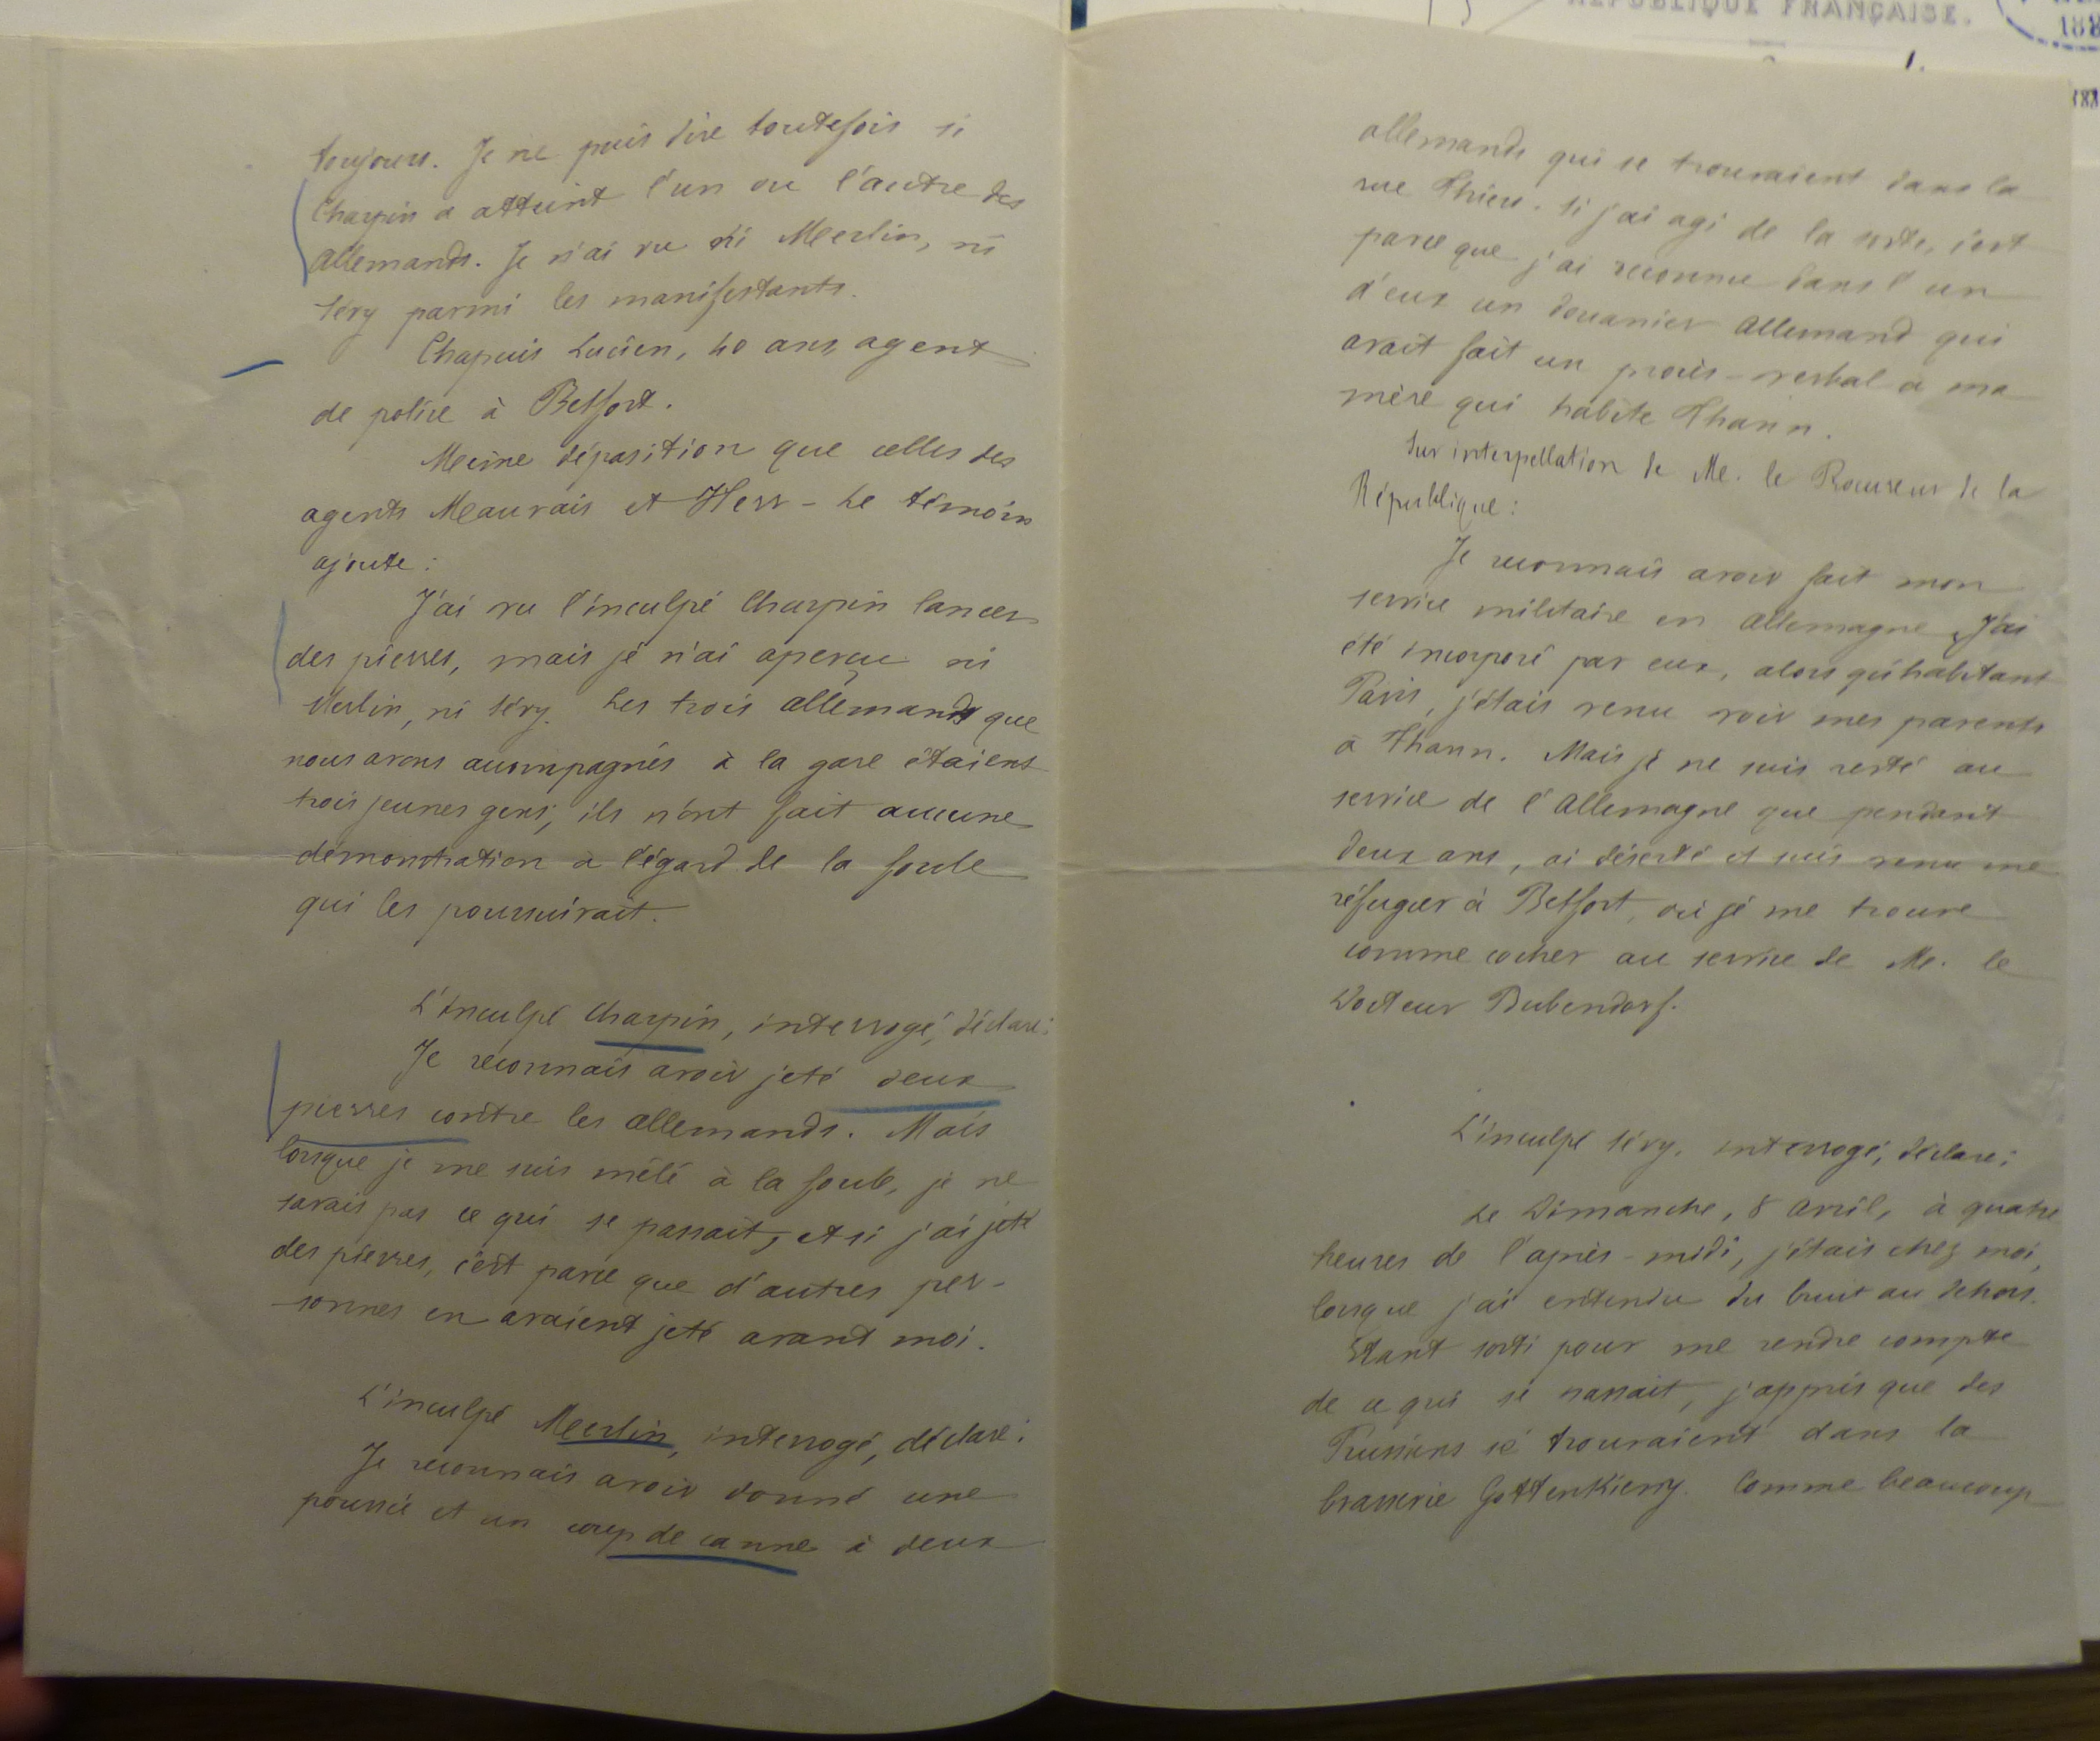 toujours. Je ne puis dire toutefois si
Charpin a atteint l'un ou l'autre des
Allemands. Je n'ai vu ni Merlin, ni
Séry parmi les manifestants.
Chapuis Lucien, 40 ans, agent
de police à Belfort.
Même déposition que celles des
agents Meauvais et Herr - Le témoin
ajoute :
J'ai vu l'inculpé Charpin lancer
des pierres, mais je n'ai aperçu ni
Merlin, ni Séry. Les trois allemands que
nous avons accompagnés à la gare étaient
trois jeunes gens, ils n'ont fait aucune
démonstration à l'égard de la foule
qui les poursuivait.
L'inculpé Charpin, interrogé, déclare :
Je reconnais avoir jeté deux
pierres contre les allemands. Mais
lorsque je me suis mêlé à la foule, je ne
savais pas ce qui se passait, et si j'ai jeté
des pierres, c'est parce que d'autres per-
sonnes en avaient jeté avant moi.
L'inculpé Merlin, interrogé, déclare :
Je reconnais avoir donné une
poussée et un coup de canne à deux
RÉPUBLIQUE FRANÇAISE.
allemands qui se trouvaient dans la
rue Thiers. Si j'ai agi de la sorte, c'est
parce que j'ai reconnu dans l'un
d'eux un douanier Allemand qui
avait fait un procès-verbal à ma
mère qui habite Thann.
Sur interpellation de Mr. le Procureur de la
République :
Je reconnais avoir fait mon
service militaire en Allemagne. J'ai
été incorporé par eux, alors qu'habitant
Paris, j'étais venu voir mes parents
à Thann. Mais je ne suis resté au
service de l'Allemagne que pendant
deux ans, ai déserté et suis venu me
réfugier à Belfort, où je me trouve
comme cocher au service de Mr. le
Docteur Bubendorf.
L'inculpé Séry, interrogé, déclare :
Le Dimanche, 8 Avril, à quatre
heures de l'après-midi, j'étais chez moi,
lorsque j'ai entendu du bruit au dehors.
Etant sorti pour me rendre compte
de ce qui se passait, j'appris que des
Prussiens se trouvaient dans la
brasserie Gottenkieny. Comme beaucoup